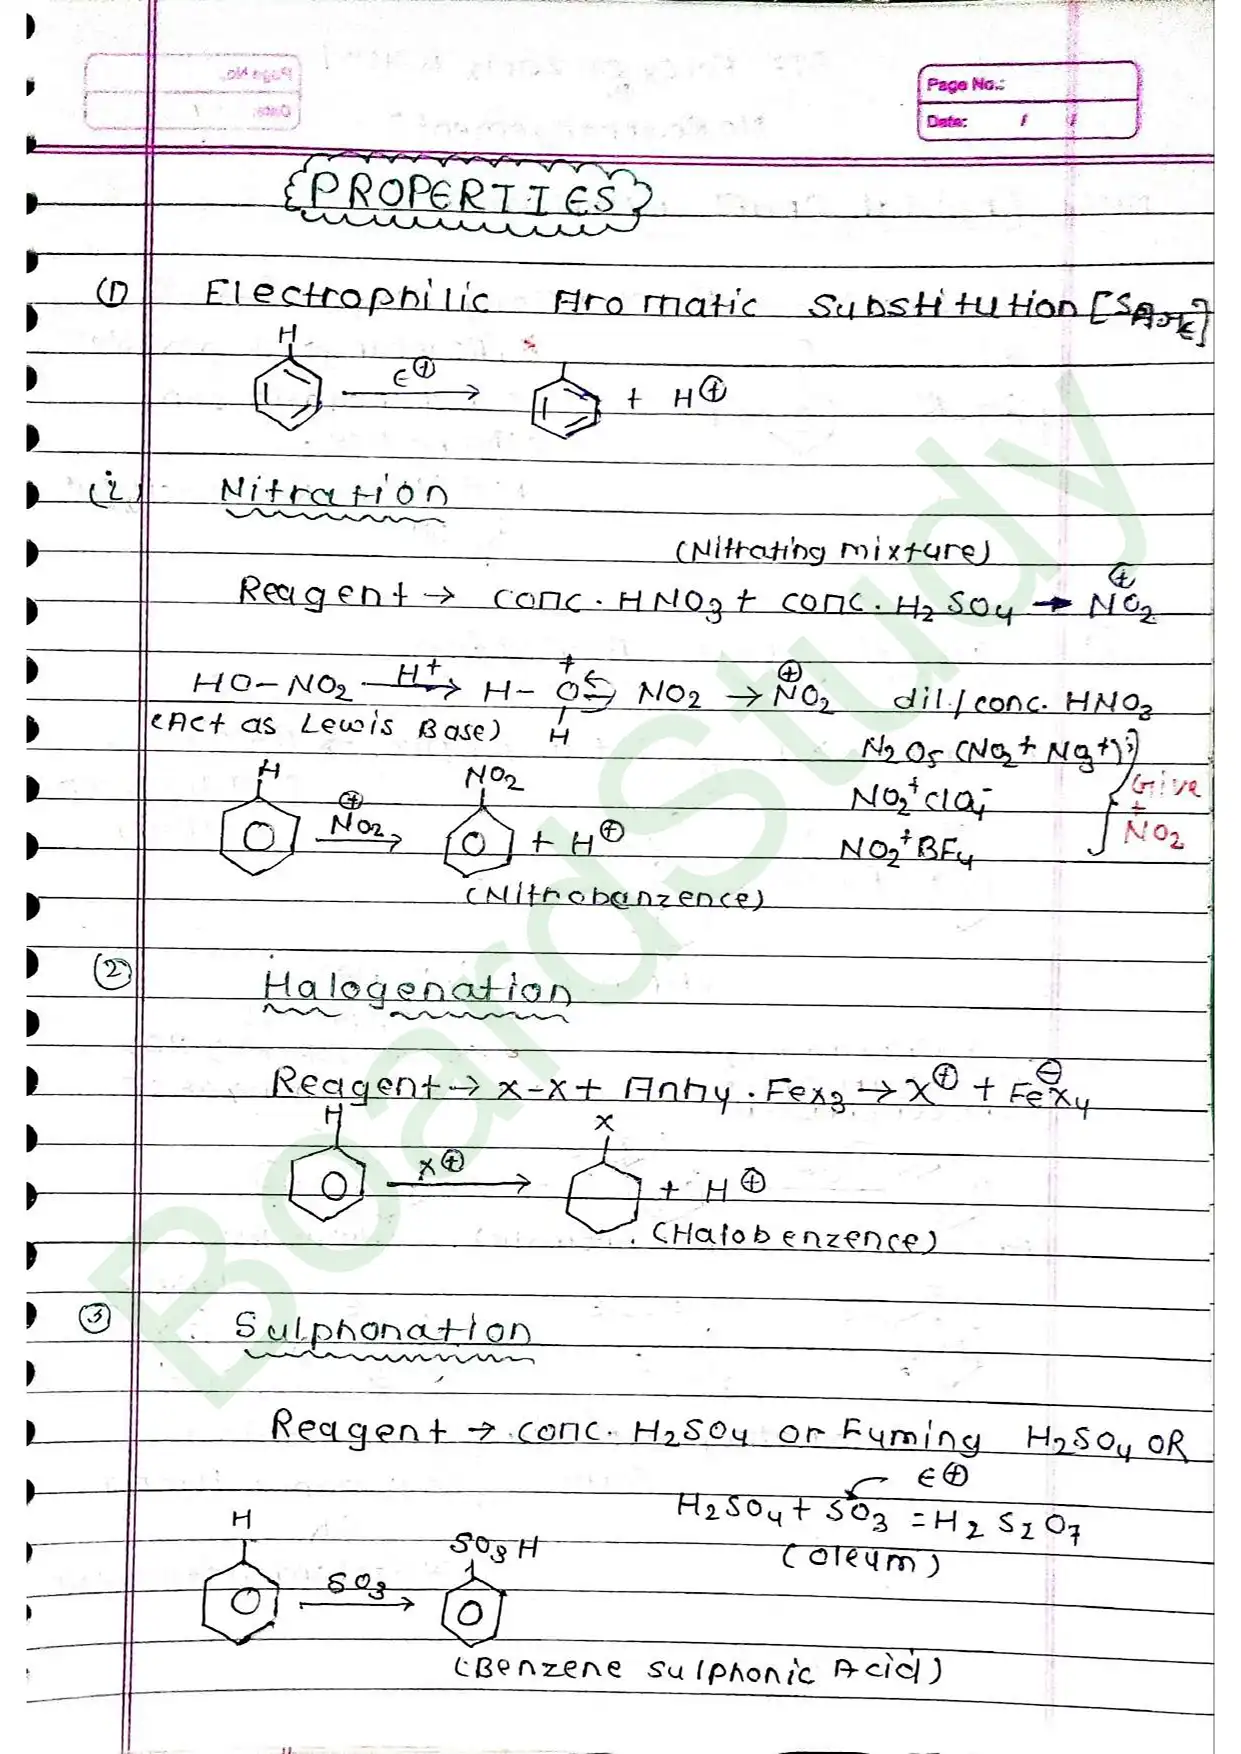 Page No.:
Date: / /
PROPERTIES
(1) Electrophilic Aromatic Substitution [SArE]
H
E⊕ → + H⊕
(i) Nitration
(Nitrating mixture)
Reagent → conc. HNO3 + conc. H2SO4 → N⊕O2
HO-NO2 H+→ H-O+ NO2 → N⊕O2 dil./conc. HNO3
(Act as Lewis Base) H
N2O5 (NO2+ NO3+)
NO2+ClO4-
NO2+BF4
Give +NO2
H NO2
N⊕O2 → + H⊕
(Nitrobanzence)
(2) Halogenation
Reagent → X-X + Anhy. FeX3 → X⊕ + Fe⊖X4
H X
X⊕ → + H⊕
(Halobenzence)
(3) Sulphonation
Reagent → conc. H2SO4 or Fuming H2SO4 OR
E⊕
H2SO4 + SO3 = H2S2O7
(Oleum)
H SO3H
SO3 →
(Benzene sulphonic Acid)
BoardStudy